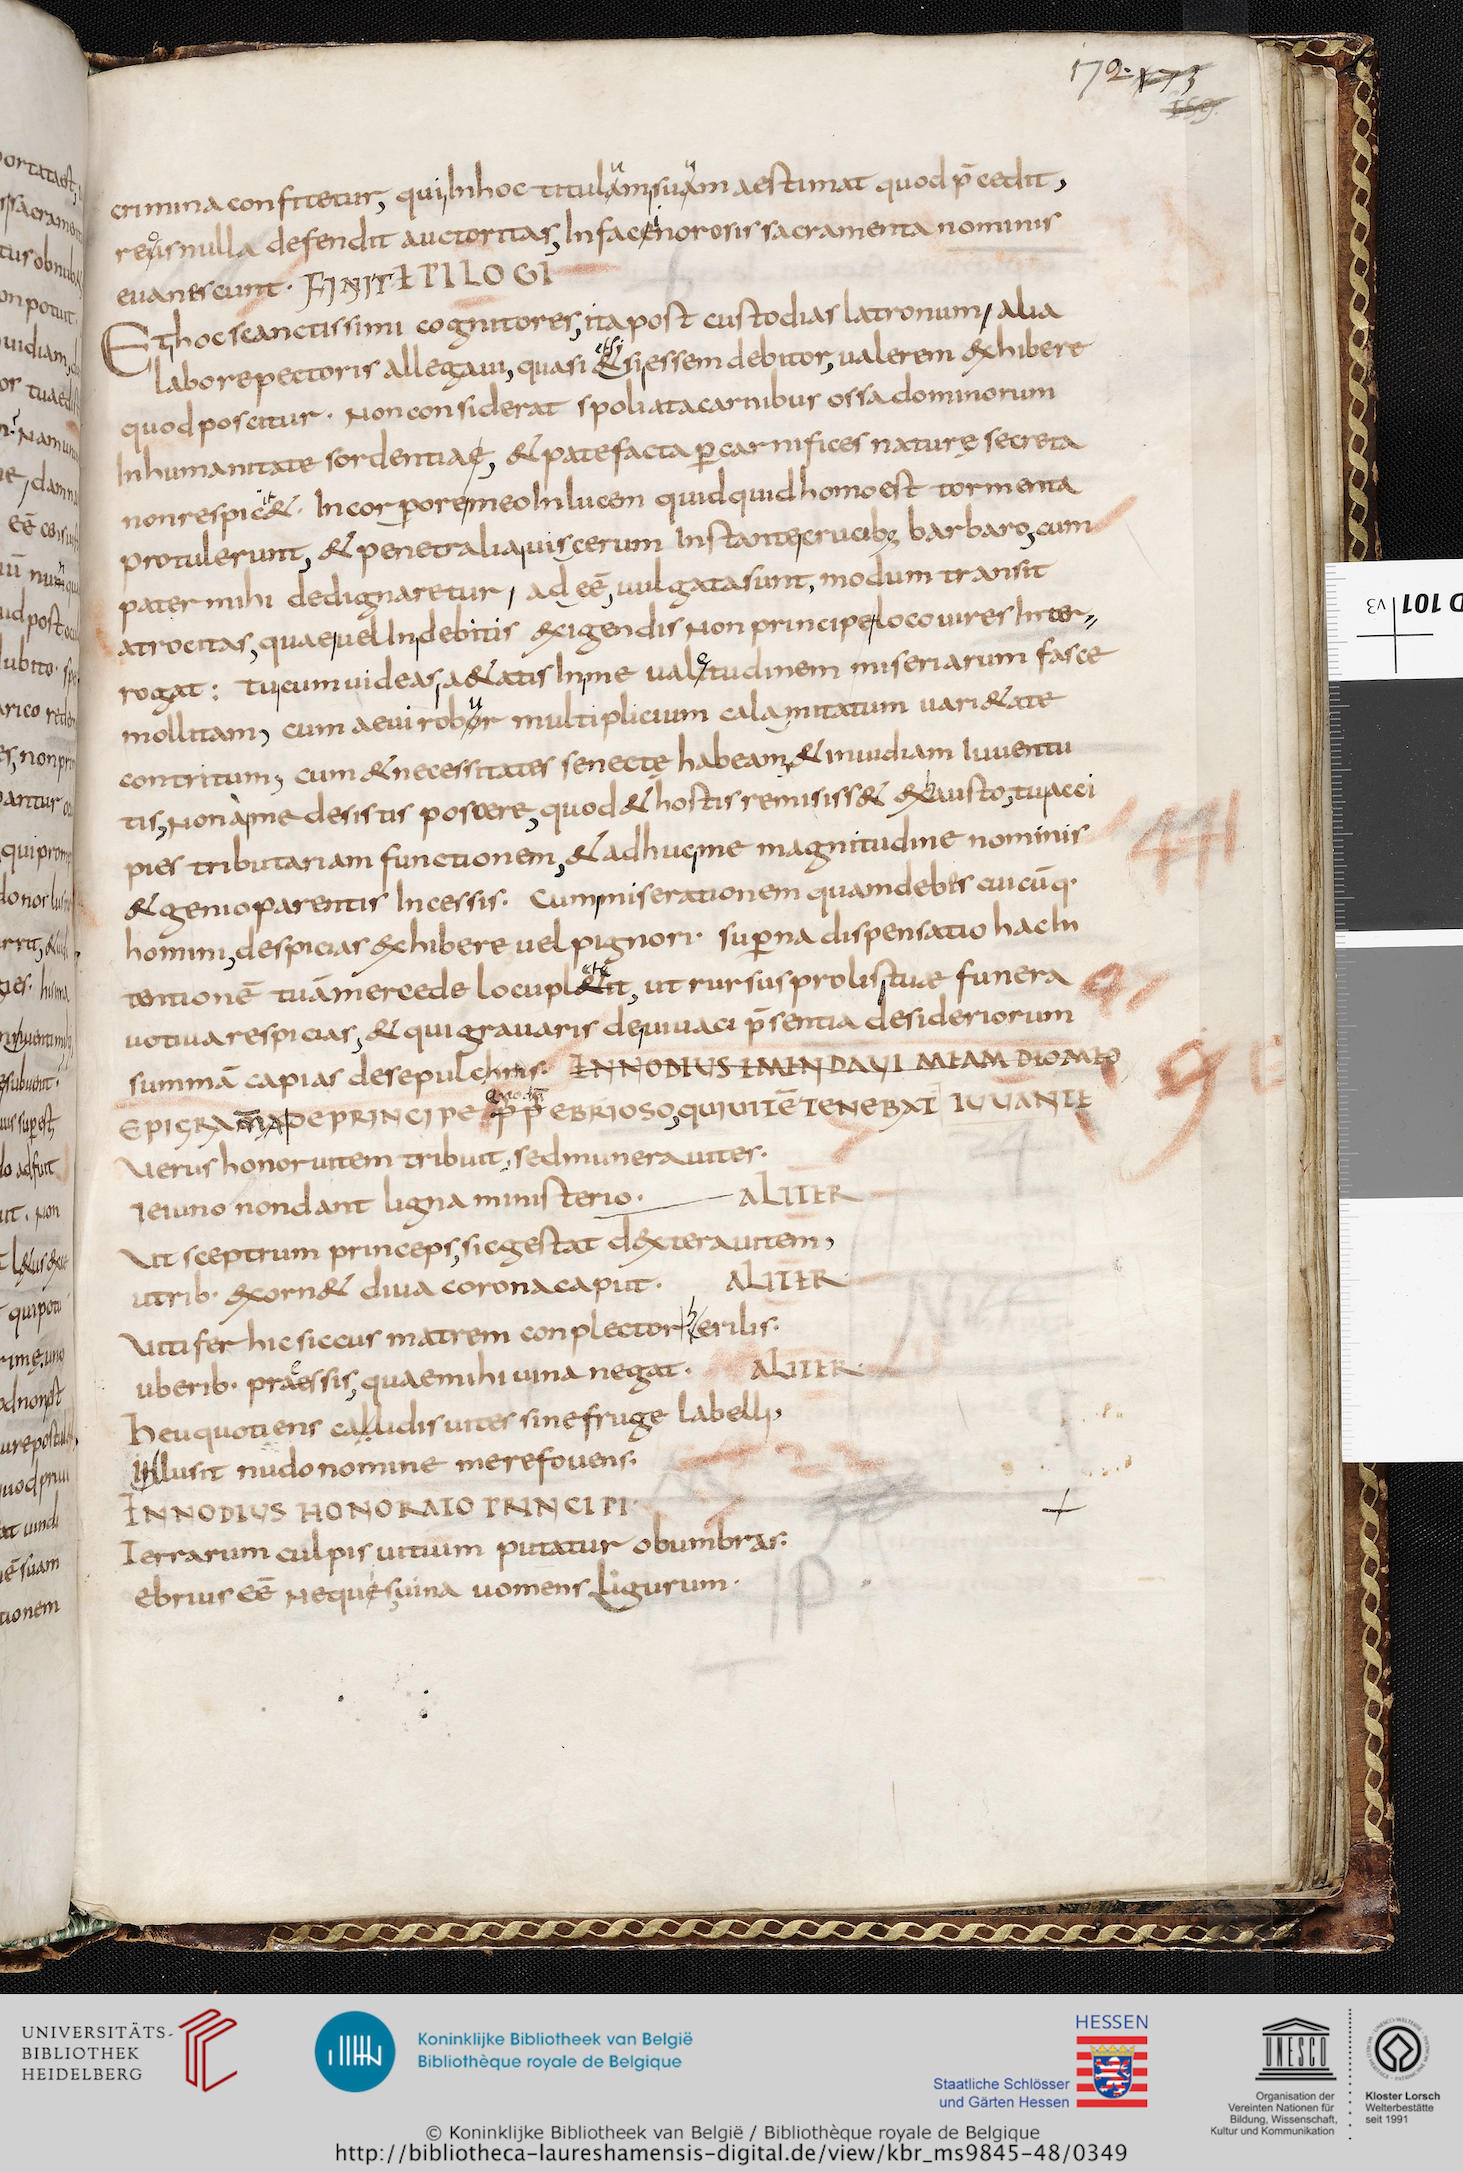 172. 173
crimina confitetur, qui In hoc titulum suum aestimat quod p̄cedit,
reos nulla defendit auctoritas, In facinorosis sacramenta nominis
euanescunt. FINIT EPILOGI
Et hoc scanctissimi cognitores, ita post custodias latronum, alia
labore pectoris allegaui, quasi etsi essem debitor, ualerem exhibere
quod poscitur. Non considerat spoliata carnibus ossa dominorum
Inhumanitate sordentia, & patefacta p carnifices naturę secreta
non respicit. In corpore meo In lucem quidquid homo est tormenta
protulerunt, & penetralia uiscerum Instante crucib; barbaro, cum
pater mihi dedignaretur, ad eē, uulgata sunt, modum transit
atrocitas, quae uel In debitis exigendis Non principe loco uires Inter-
rogat: tu cum uideas, a&atis In me ualetudinem miseriarum fasce
mollitam, cum aeui robur multiplicium calamitatum uari&ate
contritum, cum & necessitates senectę habeam, & inuidiam Iuuentu
tis, Non a me desistis poscere, quod & hostis remisiss& exhausto, tu acci
pies tributariam functionem, & adhuc me magnitudine nominis
& genio parentis Incessis. Cum miserationem quam debes cuicūq.
homini, despicias exhibere uel pignori. supna dispensatio hac In
tentionē tuā mercede locupletet, ut rursus pro lis tuae funera
uotiua respicias, & qui grauaris de uiuaci p̄sentia desideriorum
summā capias de sepulchris. ENNODIUS
EPIGRAMA DE PRINCIPE EBRIOSO, QUI UITĒ TENEBAT IUUANTE
Uerus honor uitem tribuit, sed munera uites.
Ieiuno nondant ligna ministerio. ALITER
Ut sceptrum princeps, sic gestat dextera uitem,
utrib. exorn& diua corona caput. ALITER
Uitifer hic siccus matrem conplector herilis.
uberib. pressis, quae mihi uina negat. ALITER.
Heu quotiens calidis uites sine fruge labelli,
Illusit nudo nomine me refouens.
ENNODIUS HONORATO PRINCIPI.
Terrarum culpis uitium putatur obumbras.
Ebrius eē nequis, uina uomens ligurum.
D 101 v3
UNIVERSITÄTS-
BIBLIOTHEK
HEIDELBERG
Koninklijke Bibliotheek van België
Bibliothèque royale de Belgique
HESSEN
Staatliche Schlösser
und Gärten Hessen
UNESCO
Organisation der
Vereinten Nationen für
Bildung, Wissenschaft,
Kultur und Kommunikation
Kloster Lorsch
Welterbestätte
seit 1991
© Koninklijke Bibliotheek van België / Bibliothèque royale de Belgique
http://bibliotheca-laureshamensis-digital.de/view/kbr_ms9845-48/0349